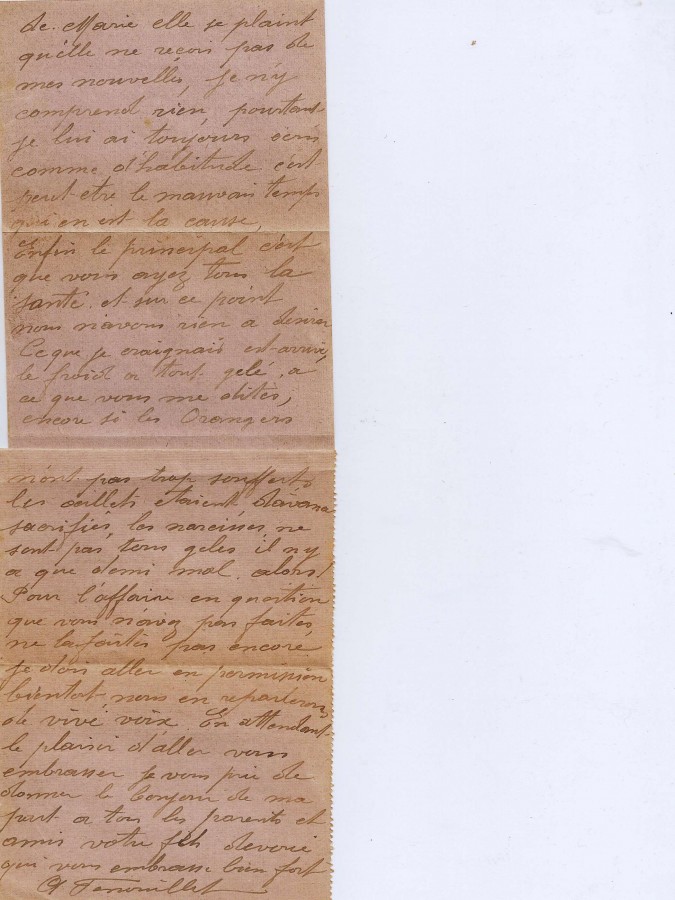 de Marie elle se plaint
qu'elle ne reçoit pas de
mes nouvelles, je n'y
comprend rien, pourtant
je lui ai toujours écris
comme d'habitude c'est
peut-etre le mauvais temps
qui en est la cause,
Enfin le principal c'est
que vous ayez tous la
santé. et sur ce point
nous n'avons rien a desirer
Ce que je craignais est arrivé,
le froid a tout gelé, a
ce que vous me dites,
encore si les Orangers
n'ont pas trop souffert,
les œillets etaient d'avance
sacrifiés, les narcisses ne
sont pas tous geles il n'y
a que demi mal. alors!
Pour l'affaire en question
que vous n'avez pas faites,
ne la faites pas encore
je dois aller en permission
bientot nous en reparlerons
de vive voix. En attendant
le plaisir d'aller vous
embrasser je vous prie de
donner le bonjour de ma
part a tous les parents et
amis votre fils devoué
qui vous embrasse bien fort